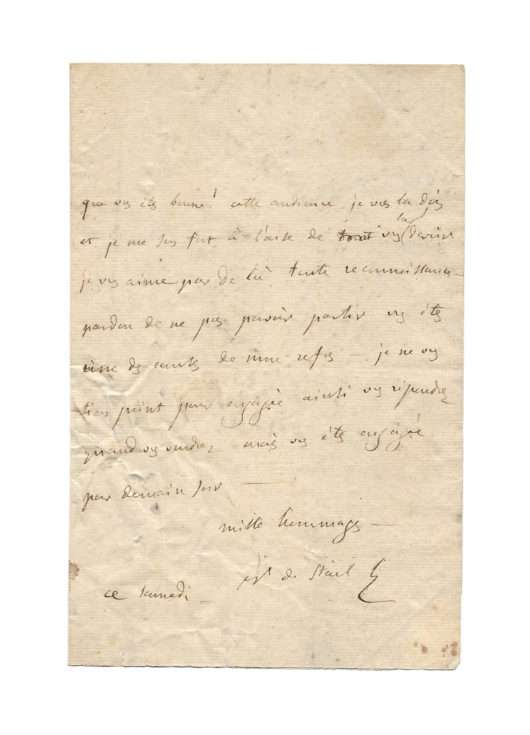 que vs êtes bonne! cette audience je vs la dois
et je me suis fort à l'aise de vs la devoir
je vs aime par de là toute reconnoissance
pardon de ne pas pouvoir partir vs êtes
une des de mon refus — je ne vs
tiens point pour engagée ainsi vs répondrez
quand vs voudrez mais vs êtes engagée
pour demain soir —
mille hommages —
de Staël
ce samedi